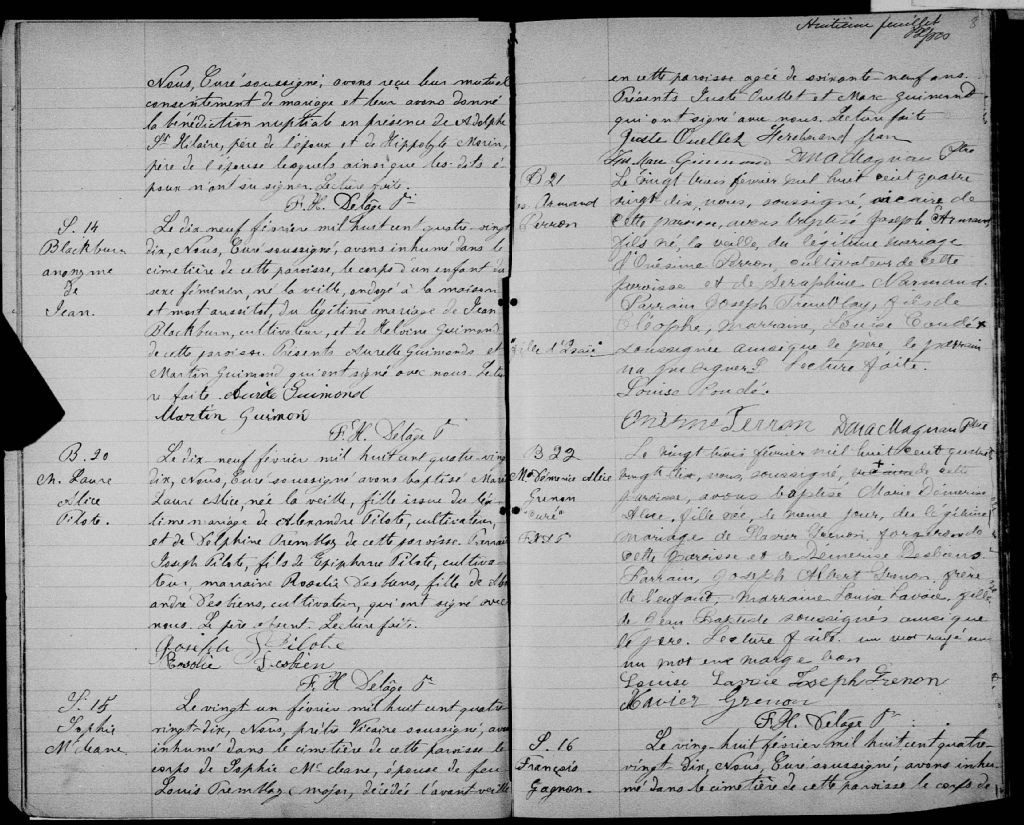 Nous, Curé soussigné, avons reçu leur mutuel
consentement de mariage et leur avons donné
la bénédiction nuptiale en présence de Adolphe
St Hilaire, père de l'époux et de Hippolyte Morin,
père de l'épouse lesquels ainsi que les-dits é-
poux n'ont su signer. Lecture faite.
F. H. Delâge Ptr
S. 14
Blackburn
anonyme
de
Jean.
Le dix neuf février mil huit cent quatre-vingt
dix, Nous, Curé soussigné, avons inhumé dans le
cimetière de cette paroisse, le corps d'un enfant du
sexe féminin, né la veille, ondoyé à la maison
et mort aussitot, du légitime mariage de Jean
Blackburn, cultivateur, et de Guimond
de cette paroisse. Présents Guimond et
Martin Guimond qui ont signé avec nous. Lectu
re faite. Guimond
Martin Guimon
F. H. Delâge Ptr
B. 20
M. Laure
Alice
Pilote.
Le dix neuf février mil huit cent quatre-ving
dix, Nous, Curé soussigné avons baptisé Marie
Laure Alice, née la veille, fille issue du légi
time mariage de Alexandre Pilote, cultivateur,
et de Delphine Tremblay de cette paroisse. Parrain
Joseph Pilote, fils de Epiphane Pilote, cultiva-
teur, marraine Rosalie Desbiens, fille de
andre Desbiens, cultivateur, qui ont signé avec
nous. Le père absent. Lecture faite.
Joseph Pilote
Rosalie Desbien
F. H. Delâge Ptr
S. 15
Sophie
McLeane.
Le vingt un février mil huit cent quatre
vingt-dix, Nous, prêtre Vicaire soussigné, avons
inhumé dans le cimetière de cette paroisse le
corps de Sophie McLeane, épouse de feu
Louis Tremblay (major, décédée l'avant veille
Huitième feuillet
8
en cette paroisse agée de soixante-neuf ans.
Présents Juste Ouellet et Marc Guimond
qui ont signé avec nous. Lecture faite
Juste Ouellet
Marc Guimond Ptre
B 21
J. Armand
Perron
Le vingt trois février mil huit cent quatre
vingt dix, nous, soussigné, vicaire de
cette paroisse, avons baptisé Joseph Armand
fils né, la veille, du légitime mariage
d'Onésime Perron, cultivateur de cette
paroisse et de Séraphine Normand.
Parrain Joseph Tremblay, fils de
Cléophe, marraine, Louise Coudé x
soussignée ainsi que le père, le parrain
n'a pu signer. Lecture faite.
Louise Coudé.
Onésime Perron Ptre
B 22
M. Démerise Alice
Grenon
"curé"
Le vingt trois février mil huit cent quatre
vingt dix, nous, soussigné, de cette
paroisse, avons baptisé Marie Démerise
Alice, fille née, le même jour, du légitime
mariage de Grenon, forgeron de
cette paroisse et de Démerise Desbiens
Parrain, Joseph Albert Grenon, frère
de l'enfant, Marraine Louise Lavoie, fille
de Jean Baptiste soussignés ainsi que
le père. Lecture faite. un mot rayé nul
un mot en marge bon
Louise Lavoie Joseph Grenon
Xavier Grenon
F. H. Delage Ptr
S. 16
François
Gagnon.
Le ving-huit février mil huit cent quatre-
vingt dix, Nous, Curé soussigné, avons inhu-
mé dans le cimetière de cette paroisse le corps de